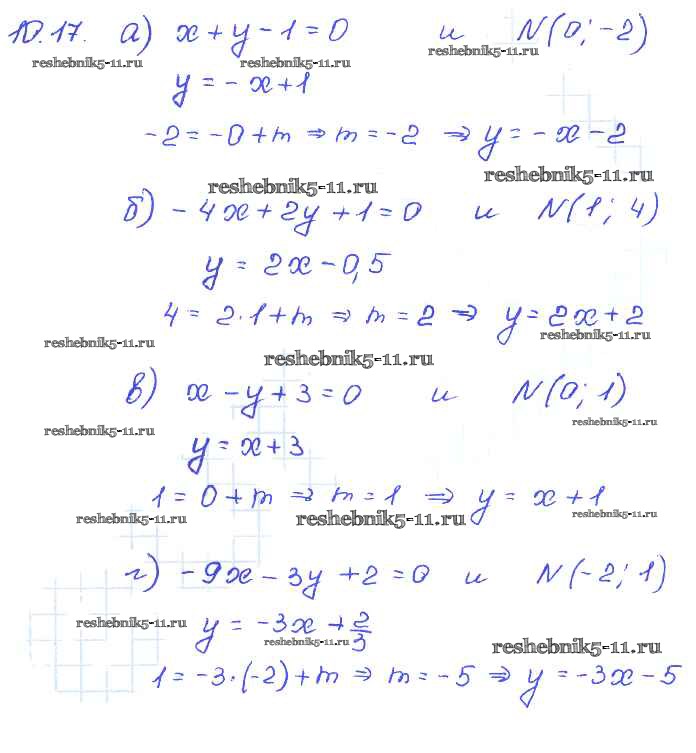 10.17. а) x + y - 1 = 0 и N(0; -2)
reshebnik5-11.ru reshebnik5-11.ru reshebnik5-11.ru
y = - x + 1
-2 = -0 + m ⇒ m = -2 ⇒ y = - x - 2
reshebnik5-11.ru reshebnik5-11.ru
б) - 4x + 2y + 1 = 0 и N(1; 4)
y = 2x - 0,5
4 = 2·1 + m ⇒ m = 2 ⇒ y = 2x + 2
reshebnik5-11.ru reshebnik5-11.ru reshebnik5-11.ru
в) x - y + 3 = 0 и N(0; 1)
reshebnik5-11.ru reshebnik5-11.ru
y = x + 3
1 = 0 + m ⇒ m = 1 ⇒ y = x + 1
reshebnik5-11.ru reshebnik5-11.ru reshebnik5-11.ru
г) - 9x - 3y + 2 = 0 и N(-2; 1)
y = -3x + 2/3
reshebnik5-11.ru reshebnik5-11.ru reshebnik5-11.ru
1 = -3·(-2) + m ⇒ m = -5 ⇒ y = -3x - 5